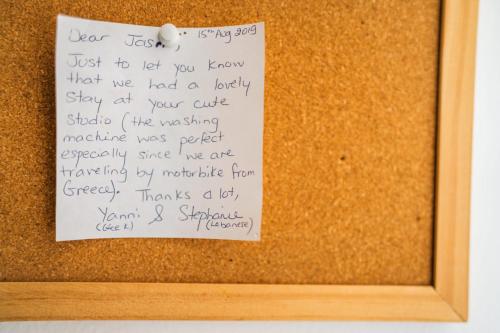 Dear 15th Aug 2019
Just to let you know
that we had a lovely
stay at your cute
studio (the washing
machine was perfect
especially since we are
traveling by motorbike from
Greece). Thanks a lot,
Yanni & Stephanie
(Greek) (Lebanese)